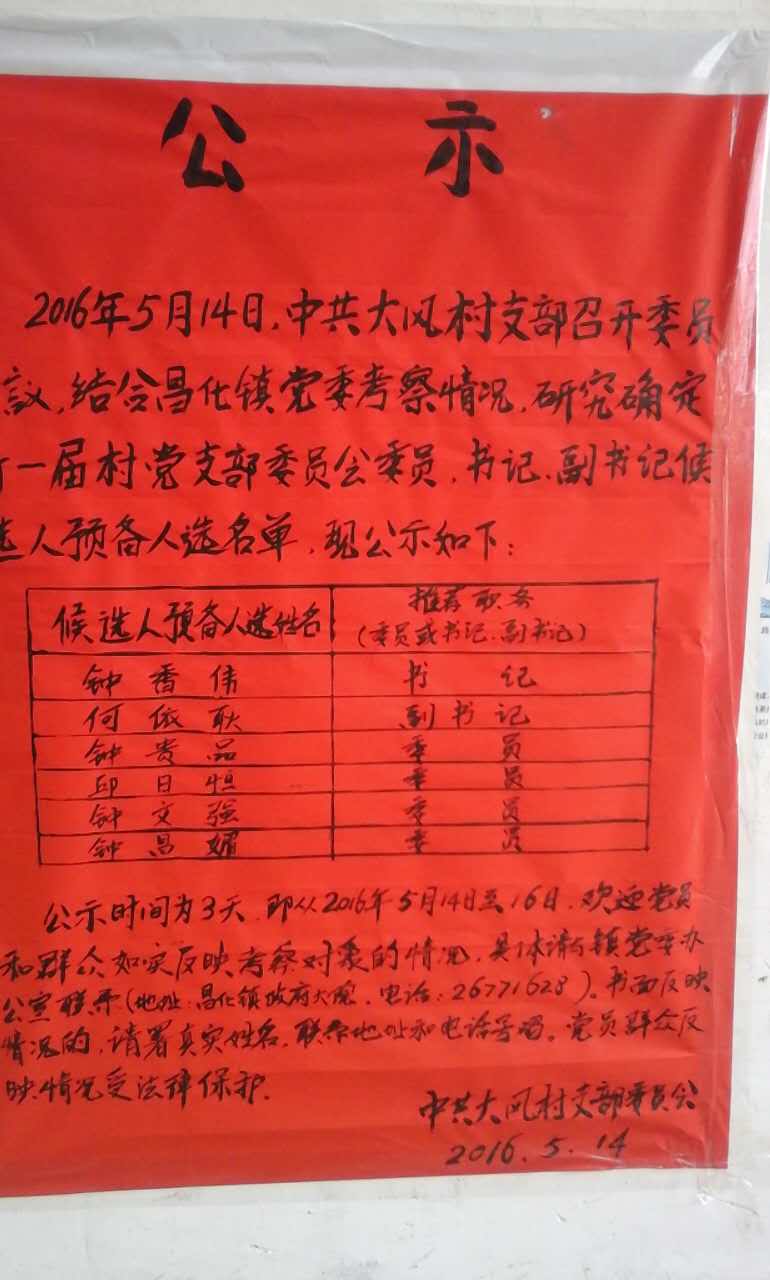 公 示
2016年5月14日,中共大风村支部召开委员
议,结合昌化镇党委考察情况,研究确定
一届村党支部委员会委员、书记、副书记候
选人预备人选名单,现公示如下:
候选人预备人选姓名 推荐职务
(委员或书记、副书记)
钟香伟 书记
何依耿 副书记
钟贵品 委员
邱日恒 委员
钟文强 委员
钟昌媚 委员
公示时间为3天,即从2016年5月14日至16日,欢迎党员
和群众如实反映考察对象的情况,具体请与镇党委办
公室联系(地址:昌化镇政府大院,电话:26771628)。书面反映
情况的,请署真实姓名,联系地址和电话号码。党员群众反
映情况受法律保护.
中共大风村支部委员会
2016.5.14